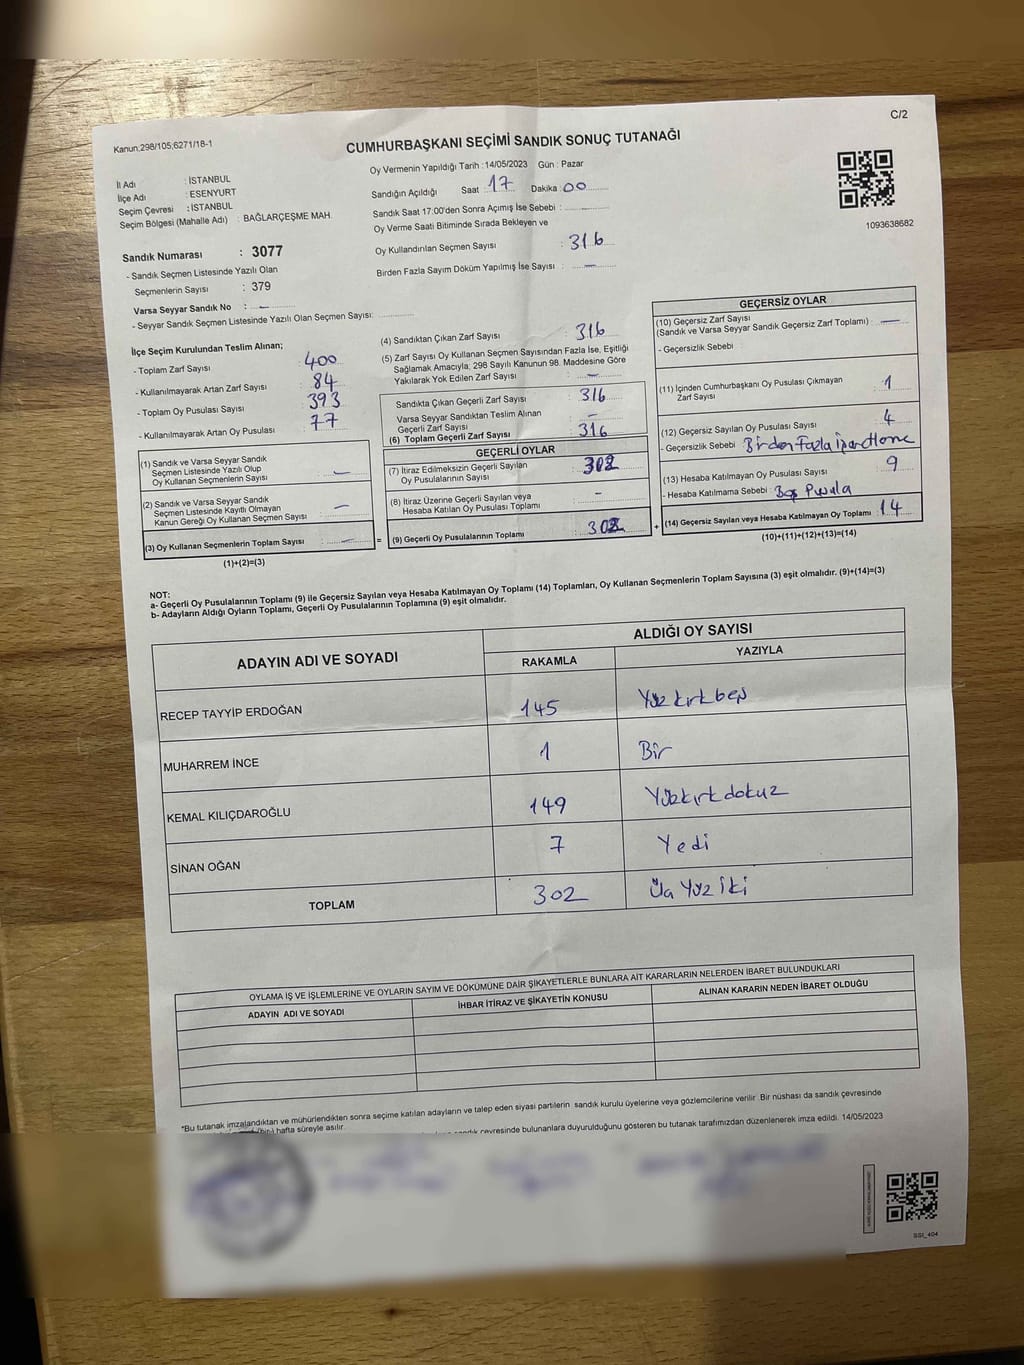 C/2
Kanun:298/105;6271/18-1
CUMHURBAŞKANI SEÇİMİ SANDIK SONUÇ TUTANAĞI
İl Adı : İSTANBUL
İlçe Adı : ESENYURT
Seçim Çevresi : İSTANBUL
Seçim Bölgesi (Mahalle Adı) : BAĞLARÇEŞME MAH.
Oy Vermenin Yapıldığı Tarih :14/05/2023 Gün : Pazar
Sandığın Açıldığı Saat 17 Dakika 00
Sandık Saat 17:00'den Sonra Açımış İse Sebebi :
Oy Verme Saati Bitiminde Sırada Bekleyen ve
Oy Kullandırılan Seçmen Sayısı : 316
Birden Fazla Sayım Döküm Yapılmış İse Sayısı : —
1093638682
Sandık Numarası : 3077
- Sandık Seçmen Listesinde Yazılı Olan
Seçmenlerin Sayısı : 379
Varsa Seyyar Sandık No : —
- Seyyar Sandık Seçmen Listesinde Yazılı Olan Seçmen Sayısı:
İlçe Seçim Kurulundan Teslim Alınan;
- Toplam Zarf Sayısı : 400
- Kullanılmayarak Artan Zarf Sayısı : 84
- Toplam Oy Pusulası Sayısı : 393
- Kullanılmayarak Artan Oy Pusulası : 77
(1) Sandık ve Varsa Seyyar Sandık
Seçmen Listesinde Yazılı Olup
Oy Kullanan Seçmenlerin Sayısı : —
(2) Sandık ve Varsa Seyyar Sandık
Seçmen Listesinde Kayıtlı Olmayan
Kanun Gereği Oy Kullanan Seçmen Sayısı : —
(3) Oy Kullanan Seçmenlerin Toplam Sayısı : —
(1)+(2)=(3)
=
(4) Sandıktan Çıkan Zarf Sayısı : 316
(5) Zarf Sayısı Oy Kullanan Seçmen Sayısından Fazla İse, Eşitliği
Sağlamak Amacıyla; 298 Sayılı Kanunun 98. Maddesine Göre
Yakılarak Yok Edilen Zarf Sayısı : —
Sandıkta Çıkan Geçerli Zarf Sayısı : 316
Varsa Seyyar Sandıktan Teslim Alınan
Geçerli Zarf Sayısı : —
(6) Toplam Geçerli Zarf Sayısı : 316
GEÇERLİ OYLAR
(7) İtiraz Edilmeksizin Geçerli Sayılan
Oy Pusulalarının Sayısı : 302
(8) İtiraz Üzerine Geçerli Sayılan veya
Hesaba Katılan Oy Pusulası Toplamı : -
(9) Geçerli Oy Pusulalarının Toplamı : 302
+
GEÇERSİZ OYLAR
(10) Geçersiz Zarf Sayısı
(Sandık ve Varsa Seyyar Sandık Geçersiz Zarf Toplamı) : —
- Geçersizlik Sebebi :
(11) İçinden Cumhurbaşkanı Oy Pusulası Çıkmayan
Zarf Sayısı : 1
(12) Geçersiz Sayılan Oy Pusulası Sayısı : 4
- Geçersizlik Sebebi : Birden Fazla
(13) Hesaba Katılmayan Oy Pusulası Sayısı : 9
- Hesaba Katılmama Sebebi : Boş Pusula
(14) Geçersiz Sayılan veya Hesaba Katılmayan Oy Toplamı : 14
(10)+(11)+(12)+(13)=(14)
NOT:
a- Geçerli Oy Pusulalarının Toplamı (9) ile Geçersiz Sayılan veya Hesaba Katılmayan Oy Toplamı (14) Toplamları, Oy Kullanan Seçmenlerin Toplam Sayısına (3) eşit olmalıdır. (9)+(14)=(3)
b- Adayların Aldığı Oyların Toplamı, Geçerli Oy Pusulalarının Toplamına (9) eşit olmalıdır.
ADAYIN ADI VE SOYADI
ALDIĞI OY SAYISI
RAKAMLA YAZIYLA
RECEP TAYYİP ERDOĞAN 145 Yüzkırkbeş
MUHARREM İNCE 1 Bir
KEMAL KILIÇDAROĞLU 149 Yüzkırkdokuz
SİNAN OĞAN 7 Yedi
TOPLAM 302 Üç Yüz İki
OYLAMA İŞ VE İŞLEMLERİNE VE OYLARIN SAYIM VE DÖKÜMÜNE DAİR ŞİKAYETLERLE BUNLARA AİT KARARLARIN NELERDEN İBARET BULUNDUKLARI
ADAYIN ADI VE SOYADI İHBAR İTİRAZ VE ŞİKAYETİN KONUSU ALINAN KARARIN NEDEN İBARET OLDUĞU
*Bu tutanak imzalandıktan ve mühürlendikten sonra seçime katılan adayların ve talep eden siyasi partilerin sandık kurulu üyelerine veya gözlemcilerine verilir. Bir nüshası da sandık çevresinde
hafta süreyle asılır.
sandık çevresinde bulunanlara duyurulduğunu gösteren bu tutanak tarafımızdan düzenlenerek imza edildi. 14/05/2023
SSI_404